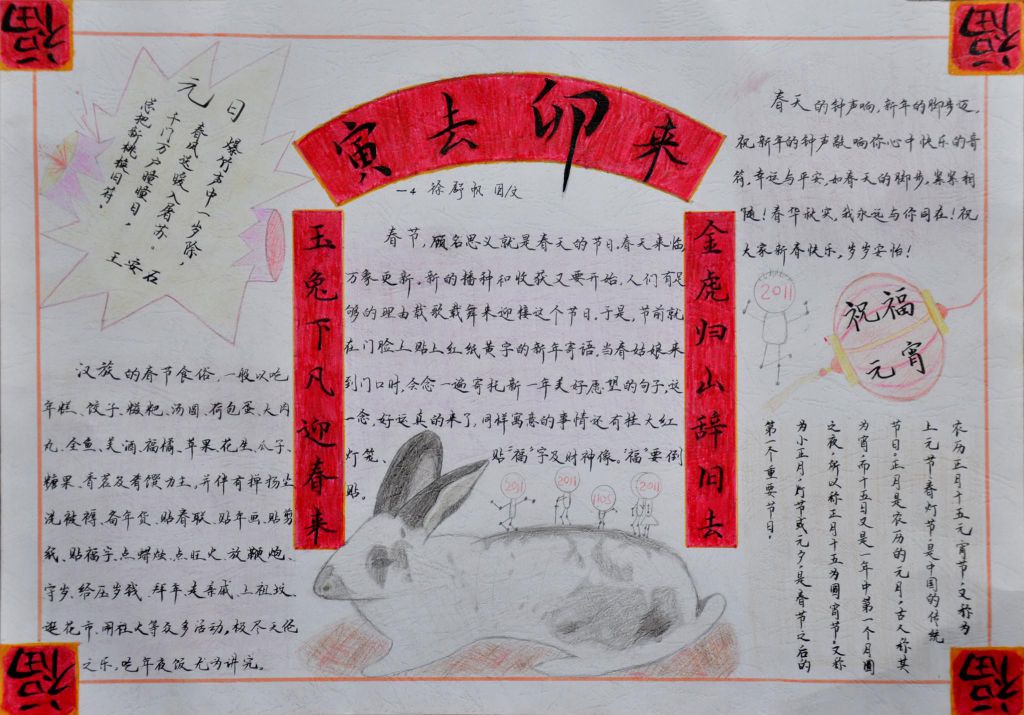 福
福
寅去卯来
一4 徐舒帆 图/文
元日
爆竹声中一岁除，
春风送暖入屠苏。
千门万户曈曈日，
总把新桃换旧符。
王安石
玉兔下凡迎春来
春节，顾名思义就是春天的节日。春天来临
万象更新，新的播种和收获又要开始。人们有足
够的理由载歌载舞来迎接这个节日。于是，节前就
在门脸上贴上红纸黄字的新年寄语。当春姑娘来
到门口时，会念一遍寄托新一年美好愿望的句子，这
一念，好运真的来了。同样寓意的事情还有挂大红
灯笼、贴“福”字及财神像。“福”要倒
贴。
金虎归山辞旧去
春天的钟声响，新年的脚步迈，
祝新年的钟声敲响你心中快乐的音
符，幸运与平安，如春天的脚步，紧紧相
随！春华秋实，我永远与你同在！祝
大家新春快乐，岁岁安怡！
2011
祝福
元宵
汉族的春节食俗，一般以吃
年糕、饺子、糍粑、汤圆、荷包蛋、大肉
丸、全鱼、美酒、福橘、苹果、花生、瓜子、
糖果、香茗及肴馔为主，并伴有掸扬尘、
洗被褥、备年货、贴春联、贴年画、贴剪
纸、贴福字、点蜡烛、点旺火、放鞭炮、
守岁、给压岁钱、拜年、走亲戚、上祖坟、
逛花市、闹社火等众多活动，极尽天伦
之乐，吃年夜饭尤为讲究。
2011
2011
2011
2011
农历正月十五元宵节，又称为
上元节，春灯节，是中国的传统
节日。正月是农历的元月，古人称其
为宵，而十五日又是一年中第一个月圆
之夜，所以称正月十五为圆宵节。又称
为小正月，灯节或元夕，是春节之后的
第一个重要节日。
福
福